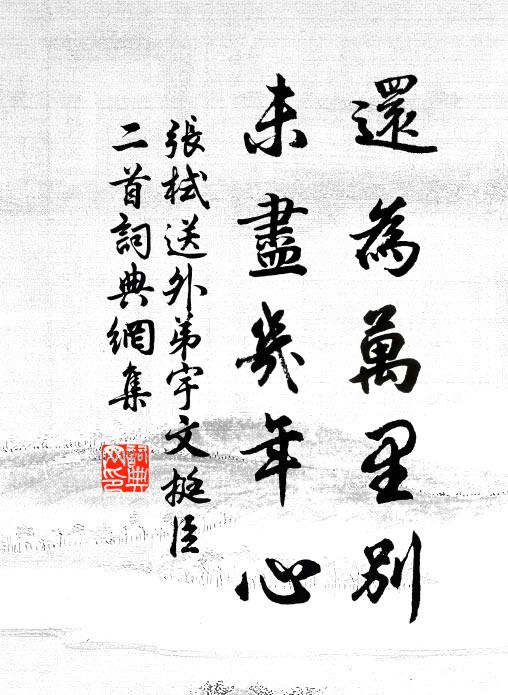 還為萬里別
未盡幾年心
張栻送外弟宇文挺臣
二首詞典網集
詞典
网印